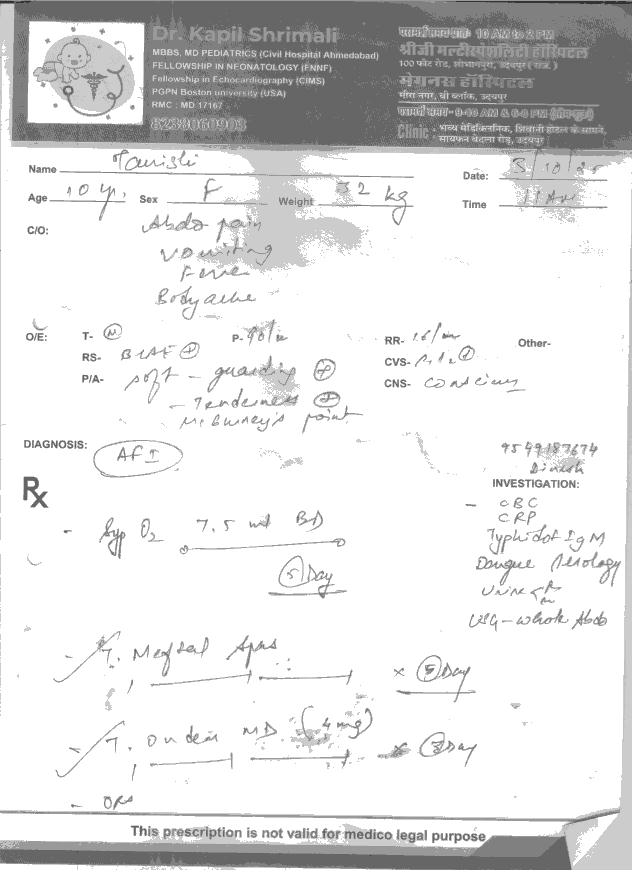 Dr. Kapil Shrimali
MBBS, MD PEDIATRICS (Civil Hospital Ahmedabad)
FELLOWSHIP IN NEONATOLOGY (FNNF)
Fellowship in Echocardiography (CIMS)
PGPN Boston university (USA)
RMC : MD 17167
8238060903
परामर्श समय प्रातः 10 AM to 2 PM
श्रीजी मल्टीस्पेशलिटी हॉस्पिटल
100 फीट रोड, शोभागपुरा, उदयपुर ( राज. )
मेगनस हॉस्पिटल
मीरा नगर, बी ब्लॉक, उदयपुर
Clinic : भव्य मेडिक्लिनिक, शिवानी होटल के सामने,
सायफन बेदला रोड़, उदयपुर
Name
Date: 5/10/25
Age 10 yr. Sex F Weight 32 kg
Time 11 AM
C/O: Abdo pain
Vomiting
Fever
Bodyache
O/E: T- P- 90/m RR- Other-
RS- BLAE + CVS-
P/A- soft - guarding + CNS- conscious
- Tenderness +
McBurney's point
DIAGNOSIS: AFI
9549187674
Dinesh
Rx
INVESTIGATION:
- CBC
CRP
Typhidot IgM
Dengue serology
Urine
USG - whole Abdo
- Syp O2 7.5 ml BD
5 Day
- T. Meftal Spas × 5 Day
- T. Ondem MD (4 mg) × 3 Day
- ORS
This prescription is not valid for medico legal purpose